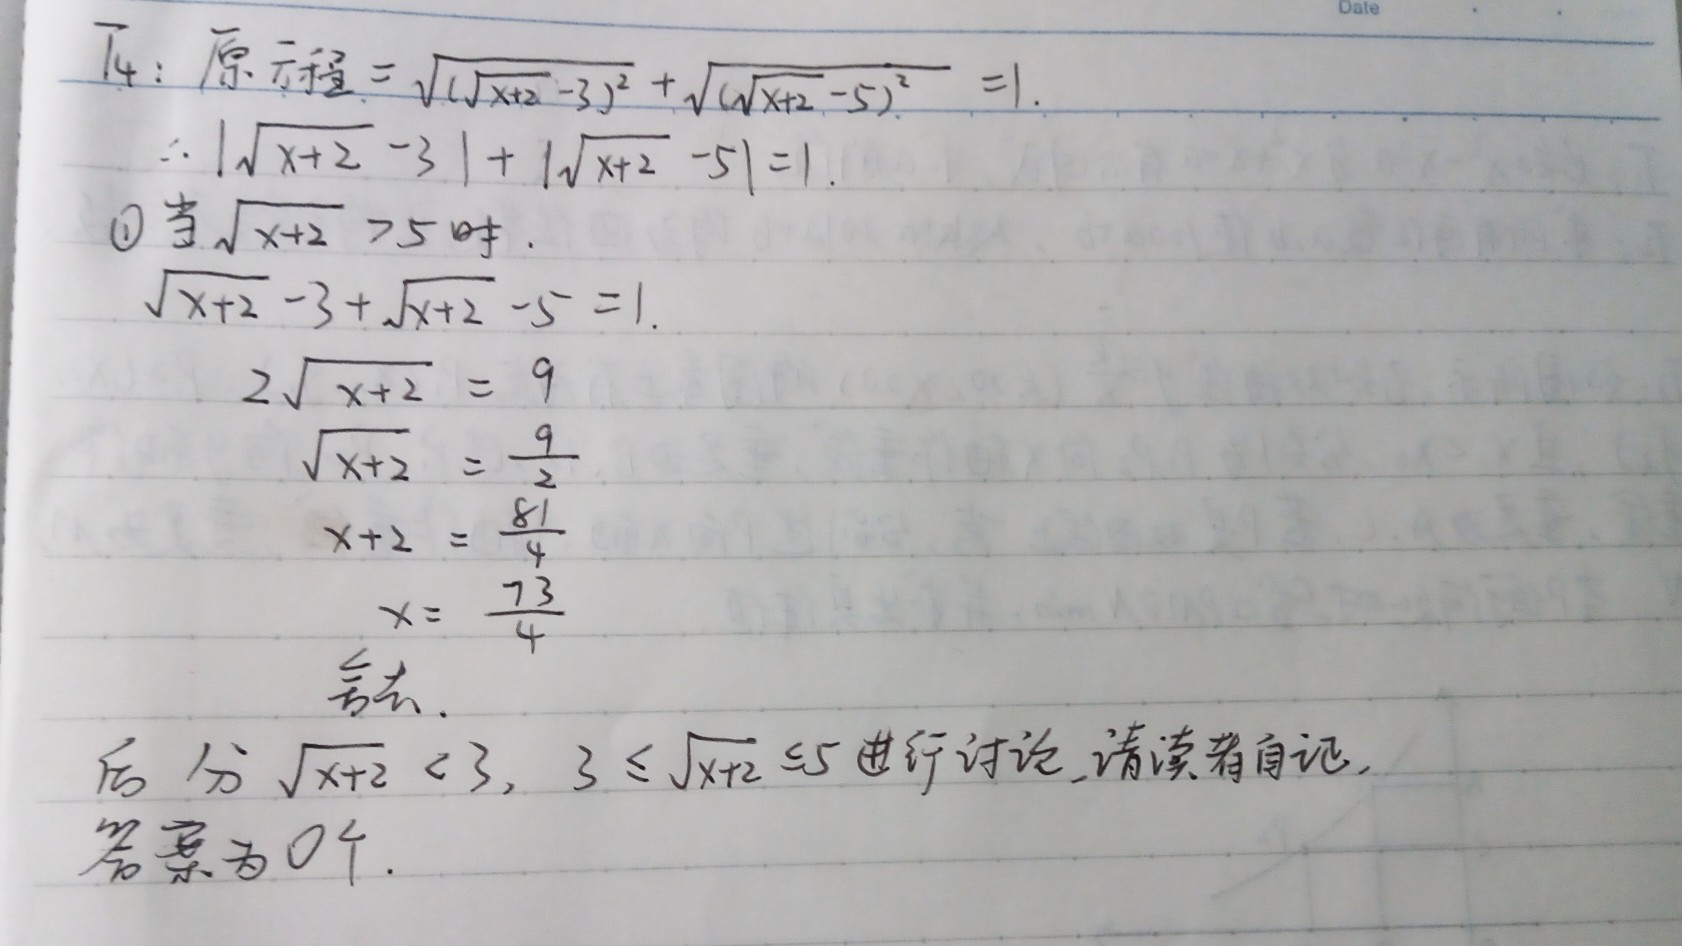 Date
T4: 原方程 = √(√(x+2) -3)² + √(√(x+2) -5)² =1.
∴ |√(x+2) -3| + |√(x+2) -5| =1.
① 当√(x+2) >5时.
√(x+2) -3+√(x+2) -5 =1.
2√(x+2) = 9
√(x+2) = 9/2
x+2 = 81/4
x= 73/4
舍去.
后分√(x+2) <3, 3≤√(x+2) ≤5进行讨论,请读者自记,
答案为0个.